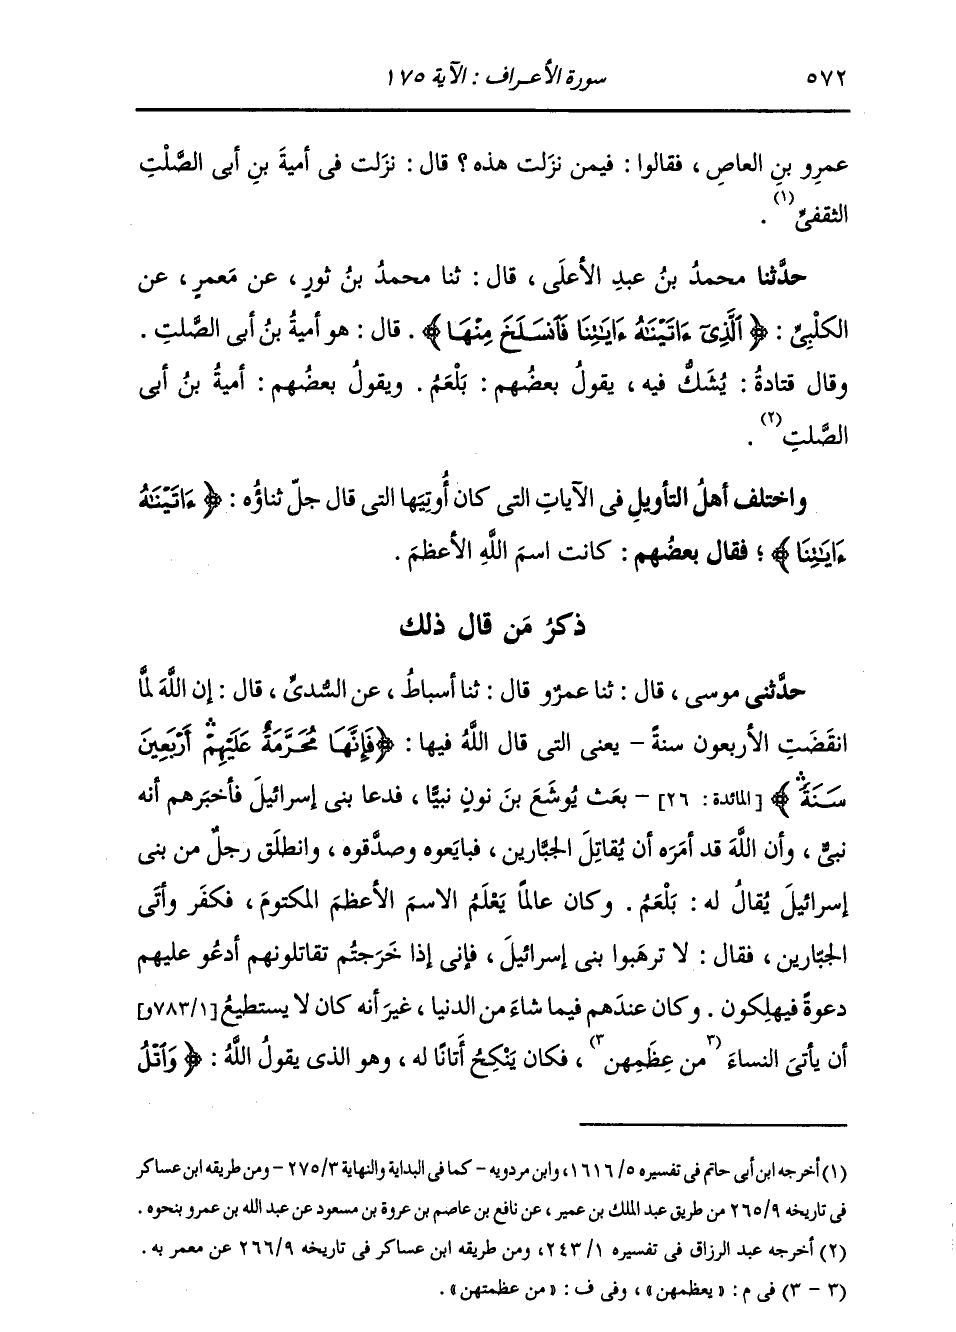 ٥٧٢ سورة الأعراف : الآية ١٧٥
عمرِو بنِ العاصِ ، فقالوا : فيمن نزَلت هذه ؟ قال : نزَلت فى أميةَ بنِ أبى الصَّلْتِ
الثقفىِّ (١) .
حدَّثنا محمدُ بنُ عبدِ الأعلَى ، قال : ثنا محمدُ بنُ ثورٍ ، عن مَعمرٍ ، عن
الكلْبِىِّ : ﴿ ٱلَّذِىٓ ءَاتَيْنَٰهُ ءَايَٰتِنَا فَٱنسَلَخَ مِنْهَا ﴾ . قال : هو أميةُ بنُ أبى الصَّلتِ .
وقال قتادةُ : يُشَكُّ فيه ، يقولُ بعضُهم : بَلْعَمُ . ويقولُ بعضُهم : أميةُ بنُ أبى
الصَّلتِ (٢) .
واختلف أهلُ التأويلِ فى الآياتِ التى كان أُوتِيَها التى قال جلّ ثناؤُه : ﴿ ءَاتَيْنَٰهُ
ءَايَٰتِنَا ﴾ ؛ فقال بعضُهم : كانت اسمَ اللَّهِ الأعظمَ .
ذكرُ مَن قال ذلك
حدَّثنى موسى ، قال : ثنا عمرٌو قال : ثنا أسباطُ ، عن السُّدىِّ ، قال : إن اللَّهَ لمَّا
انقَضَتِ الأربعون سنةً - يعنى التى قال اللَّهُ فيها : ﴿ فَإِنَّهَا مُحَرَّمَةٌ عَلَيْهِمْ ۛ أَرْبَعِينَ
سَنَةً ۛ ﴾ [المائدة : ٢٦] - بعَث يُوشَعَ بنَ نونٍ نبيًّا ، فدعا بنى إسرائيلَ فأخبَرهم أنه
نبىٌّ ، وأن اللَّهَ قد أمَرَه أن يُقاتِلَ الجبَّارين ، فبايَعوه وصدَّقوه ، وانطلَق رجلٌ من بنى
إسرائيلَ يُقالُ له : بَلْعَمُ . وكان عالمًا يَعْلَمُ الاسمَ الأعظمَ المكتومَ ، فكفَر وأتَى
الجبّارين ، فقال : لا ترهَبوا بنى إسرائيلَ ، فإنى إذا خَرَجتُم تقاتلونهم أدعُو عليهم
دعوةً فيهلِكون . وكان عندَهم فيما شاءَ من الدنيا ، غيرَ أنه كان لا يستطيعُ [٧٨٣/١و]
أن يأتىَ النساءَ (٣ من عِظَمِهن ٣) ، فكان يَنْكِحُ أَتانًا له ، وهو الذى يقولُ اللَّهُ : ﴿ وَٱتْلُ
(١) أخرجه ابن أبى حاتم فى تفسيره ١٦١٦/٥، وابن مردويه - كما فى البداية والنهاية ٢٧٥/٣ - ومن طريقه ابن عساكر
فى تاريخه ٢٦٥/٩ من طريق عبد الملك بن عمير ، عن نافع بن عاصم بن عروة بن مسعود عن عبد الله بن عمرو بنحوه .
(٢) أخرجه عبد الرزاق فى تفسيره ٢٤٣/١ ، ومن طريقه ابن عساكر فى تاريخه ٢٦٦/٩ عن معمر به .
(٣ - ٣) فى م : « يعظمهن » ، وفى ف : « من عظمتهن » .